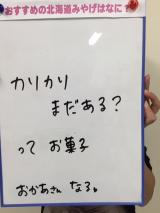 おすすめの北海道みやげはなに？
カリカリ
まだある？
って お菓子
おかあさん なる。